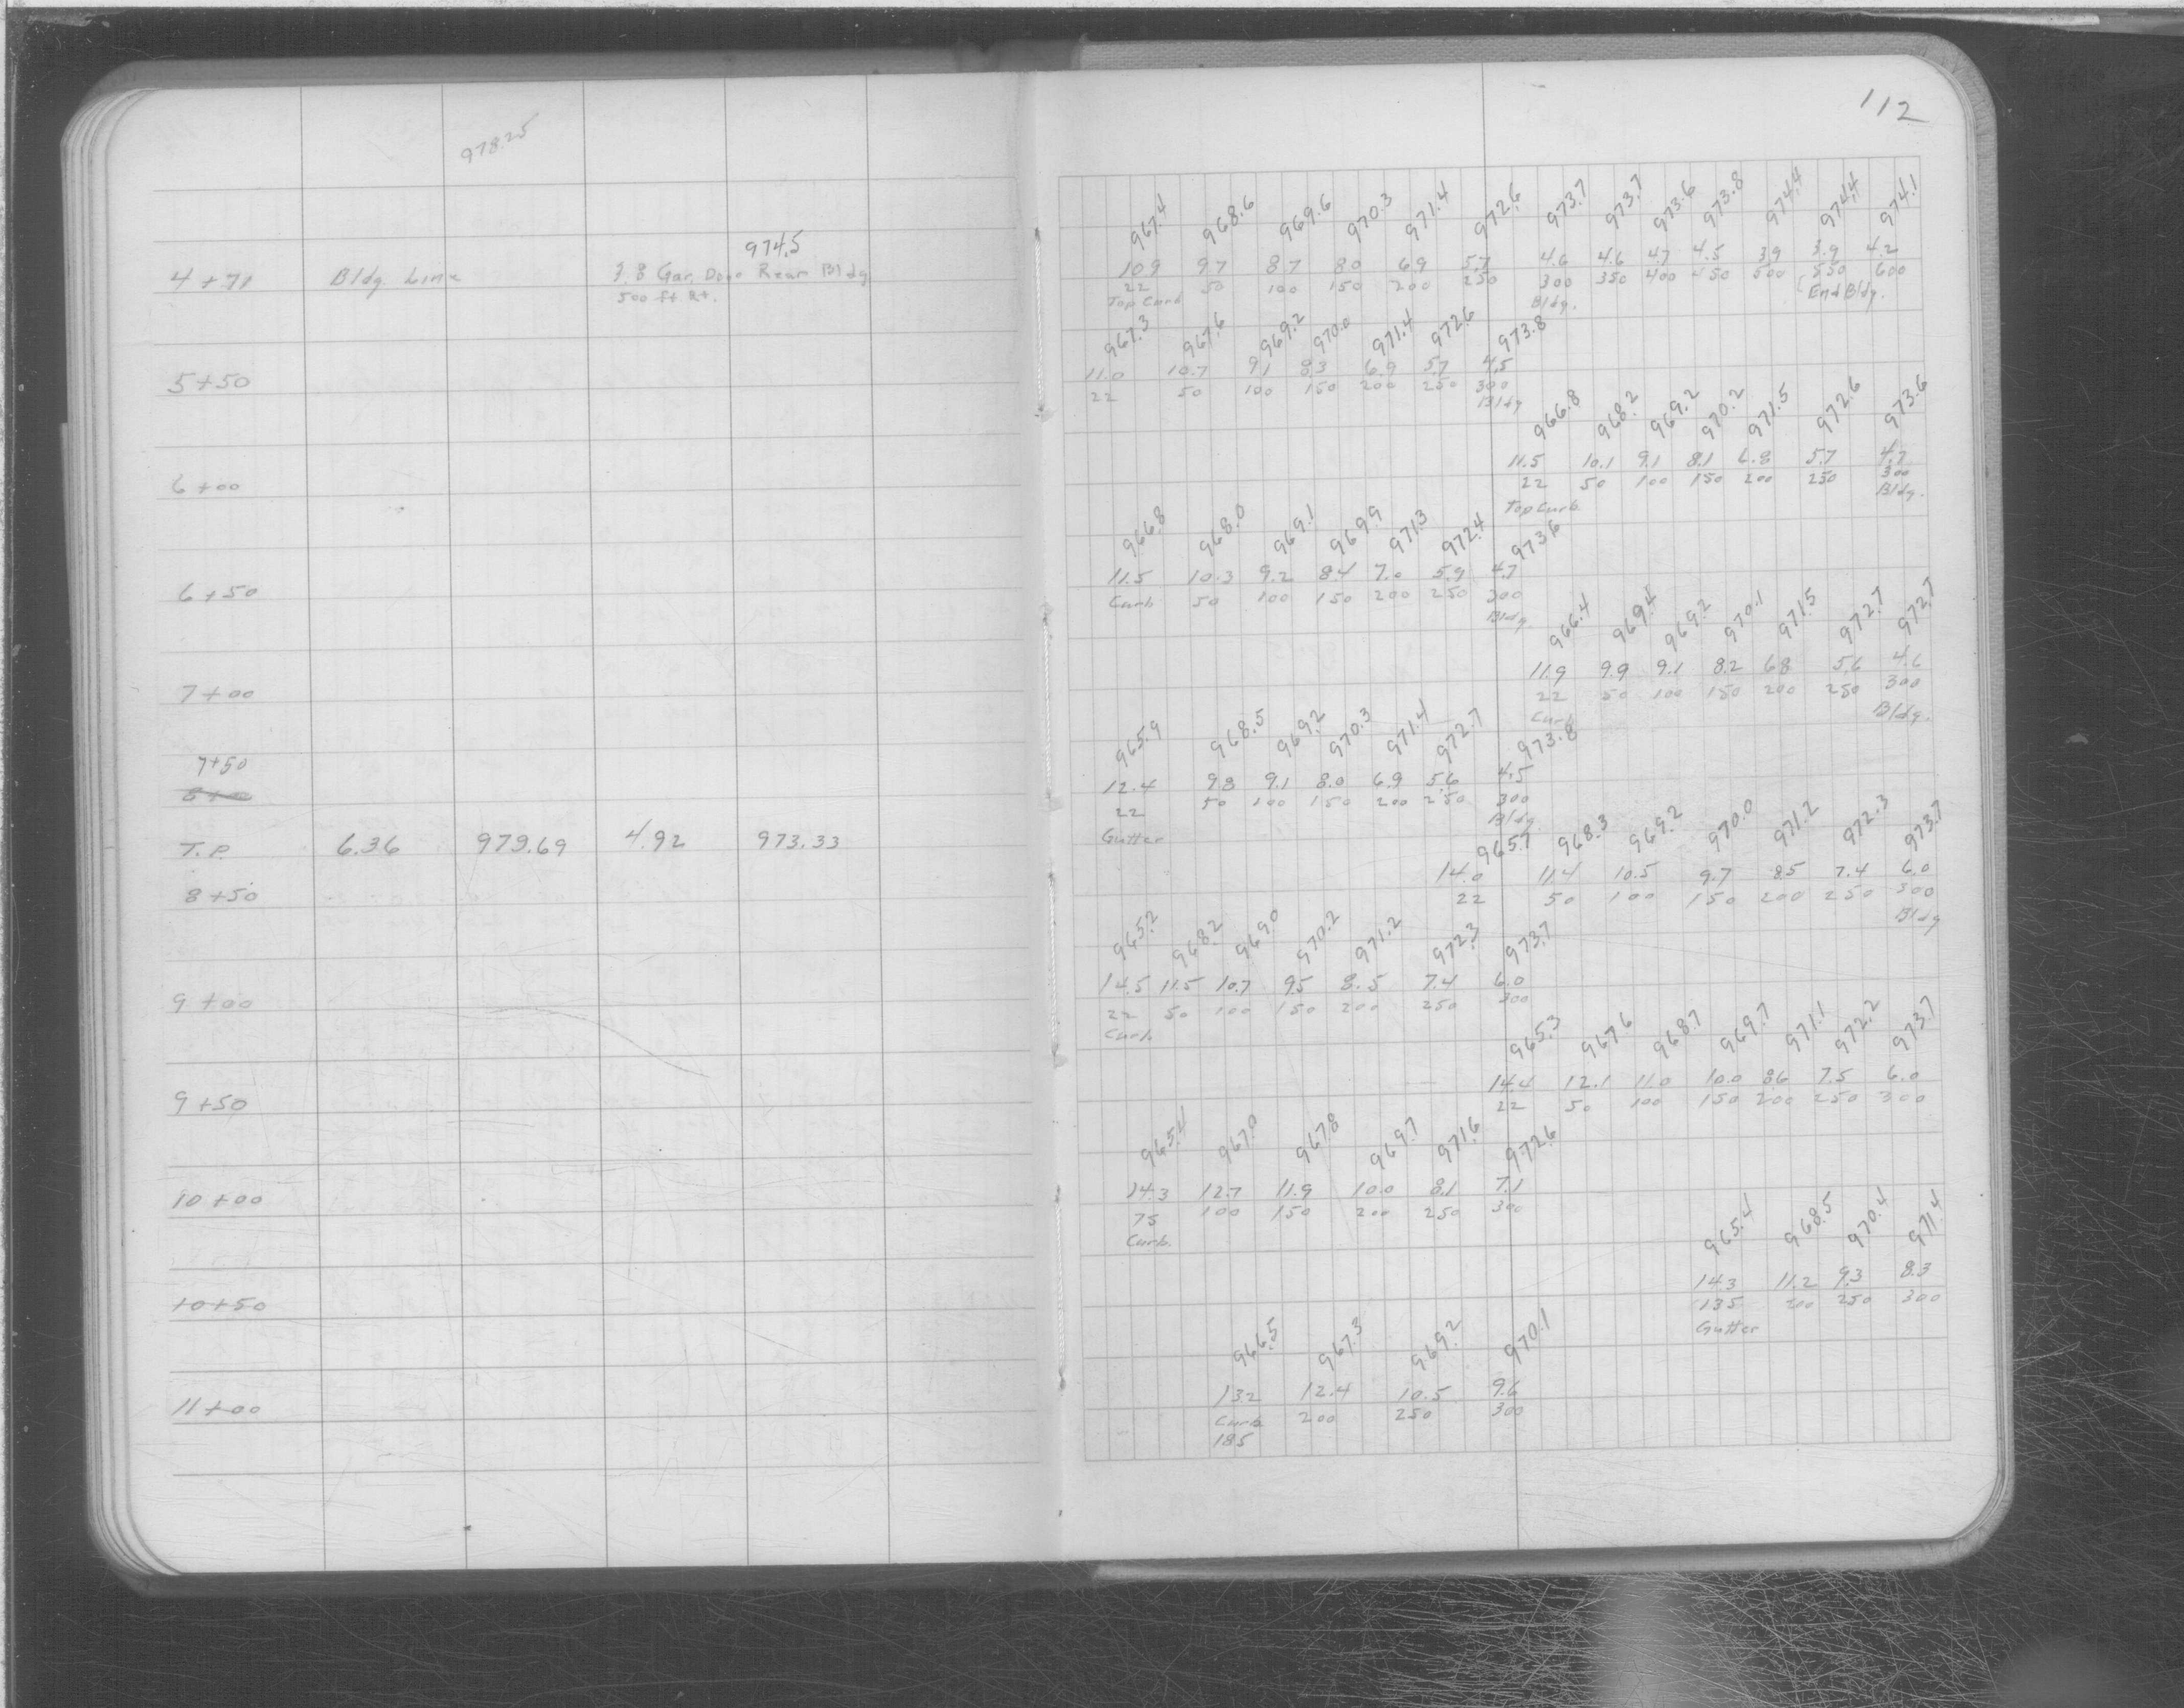 978.25
974.5
4+71 Bldg. Line 3.8 Gar. Door Rear Bldg.
500 ft Rt.
5+50
6+00
6+50
7+00
7+50
T.P. 6.36 979.69 4.92 973.33
8+50
9+00
9+50
10+00
10+50
11+00
112
967.4 968.6 969.6 970.3 971.4 972.6 973.7 973.7 973.6 973.8 974.4 974.4 974.1
10.9 9.7 8.7 8.0 6.9 5.7 4.6 4.6 4.7 4.5 3.9 3.9 4.2
22 50 100 150 200 250 300 350 400 450 500 550 600
Top Curb Bldg. End Bldg.
967.3 967.6 969.2 970.0 971.4 972.6 973.8
11.0 10.7 9.1 8.3 6.9 5.7 4.5
22 50 100 150 200 250 300
Bldg
966.8 968.2 969.2 970.2 971.5 972.6 973.6
11.5 10.1 9.1 8.1 6.8 5.7 4.7
22 50 100 150 200 250 300
Top Curb Bldg.
966.8 968.0 969.1 969.9 971.3 972.4 973.6
11.5 10.3 9.2 8.4 7.0 5.9 4.7
Curb 50 100 150 200 250 300
Bldg
966.4 969.4 969.2 970.1 971.5 972.7 972.7
11.9 9.9 9.1 8.2 6.8 5.6 4.6
22 50 100 150 200 250 300
Curb Bldg.
965.9 968.5 969.2 970.3 971.4 972.7 973.8
12.4 9.8 9.1 8.0 6.9 5.6 4.5
22 50 100 150 200 250 300
Gutter Bldg
965.7 968.3 969.2 970.0 971.2 972.3 973.7
14.0 11.4 10.5 9.7 8.5 7.4 6.0
22 50 100 150 200 250 300
Bldg
965.2 968.2 969.0 970.2 971.2 972.3 973.7
14.5 11.5 10.7 9.5 8.5 7.4 6.0
22 50 100 150 200 250 300
Curb
965.3 967.6 968.7 969.7 971.1 972.2 973.7
14.4 12.1 11.0 10.0 8.6 7.5 6.0
22 50 100 150 200 250 300
965.4 967.0 967.8 969.7 971.6 972.6
14.3 12.7 11.9 10.0 8.1 7.1
75 100 150 200 250 300
Curb.
965.4 968.5 970.4 971.4
14.3 11.2 9.3 8.3
135 200 250 300
Gutter
966.5 967.3 969.2 970.1
13.2 12.4 10.5 9.6
Curb 200 250 300
185